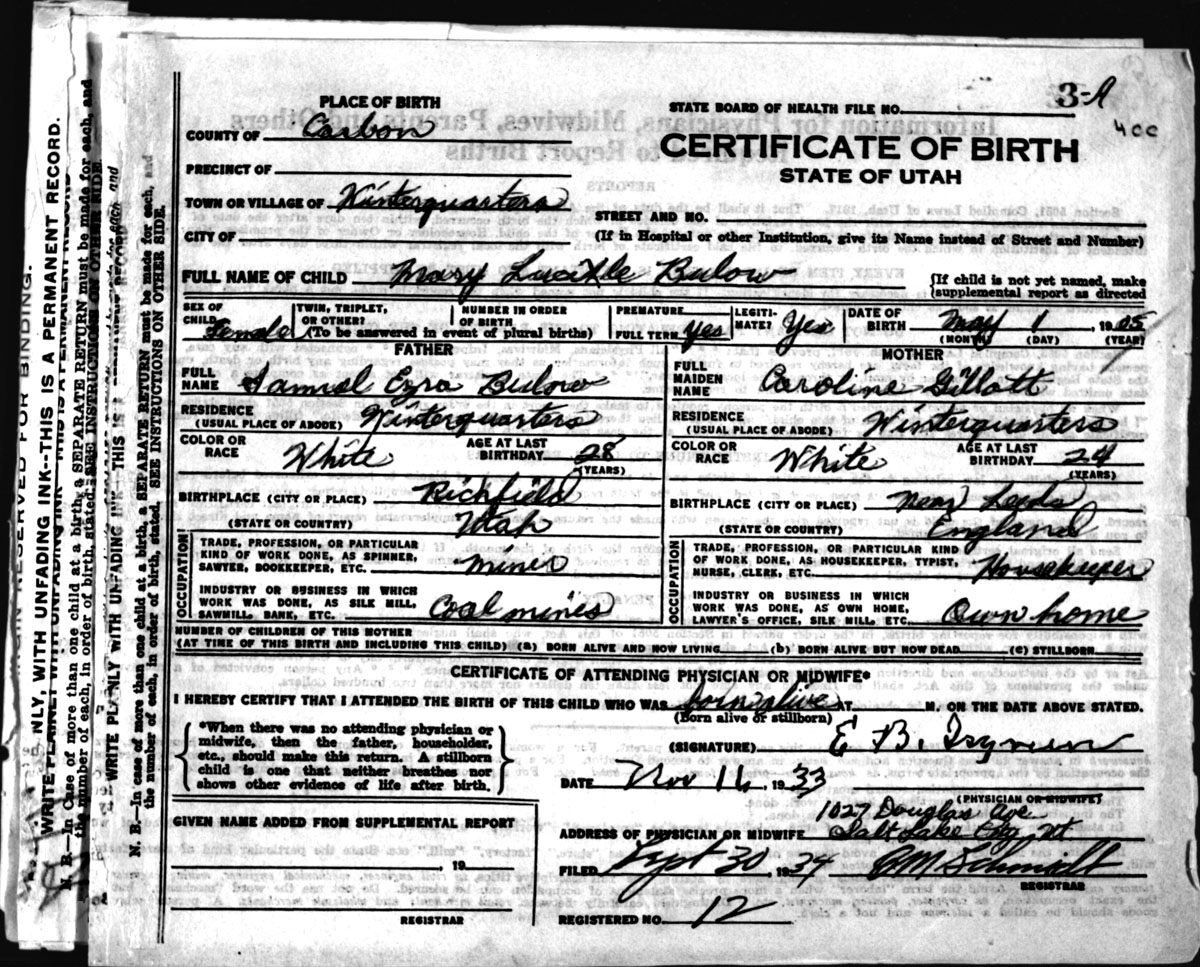 3-A
400
PLACE OF BIRTH
COUNTY OF Carbon
PRECINCT OF
TOWN OR VILLAGE OF Winterquarters
CITY OF
STATE BOARD OF HEALTH FILE NO.
CERTIFICATE OF BIRTH
STATE OF UTAH
STREET AND NO.
(If in Hospital or other Institution, give its Name instead of Street and Number)
FULL NAME OF CHILD Mary Lucille Bulow
(If child is not yet named, make
supplemental report as directed
SEX OF CHILD Female
TWIN, TRIPLET, OR OTHER?
NUMBER IN ORDER OF BIRTH
(To be answered in event of plural births)
PREMATURE
FULL TERM yes
LEGITIMATE? Yes
DATE OF BIRTH May 1, 1905
(MONTH) (DAY) (YEAR)
FATHER
FULL NAME Samuel Ezra Bulow
RESIDENCE (USUAL PLACE OF ABODE) Winterquarters
COLOR OR RACE White
AGE AT LAST BIRTHDAY 28
(YEARS)
BIRTHPLACE (CITY OR PLACE) Richfield
(STATE OR COUNTRY) Utah
OCCUPATION
TRADE, PROFESSION, OR PARTICULAR
KIND OF WORK DONE, AS SPINNER,
SAWYER, BOOKKEEPER, ETC. miner
INDUSTRY OR BUSINESS IN WHICH
WORK WAS DONE, AS SILK MILL,
SAWMILL, BANK, ETC. Coal mines
MOTHER
FULL MAIDEN NAME Caroline Gillott
RESIDENCE (USUAL PLACE OF ABODE) Winterquarters
COLOR OR RACE White
AGE AT LAST BIRTHDAY 24
(YEARS)
BIRTHPLACE (CITY OR PLACE) Near Leeds
(STATE OR COUNTRY) England
OCCUPATION
TRADE, PROFESSION, OR PARTICULAR KIND
OF WORK DONE, AS HOUSEKEEPER, TYPIST,
NURSE, CLERK, ETC. Housekeeper
INDUSTRY OR BUSINESS IN WHICH
WORK WAS DONE, AS OWN HOME,
LAWYER'S OFFICE, SILK MILL, ETC. Own home
NUMBER OF CHILDREN OF THIS MOTHER
(AT TIME OF THIS BIRTH AND INCLUDING THIS CHILD) (a) BORN ALIVE AND NOW LIVING (b) BORN ALIVE BUT NOW DEAD (c) STILLBORN
CERTIFICATE OF ATTENDING PHYSICIAN OR MIDWIFE*
I HEREBY CERTIFY THAT I ATTENDED THE BIRTH OF THIS CHILD WHO WAS born alive AT M, ON THE DATE ABOVE STATED.
(Born alive or stillborn)
*When there was no attending physician or
midwife, then the father, householder,
etc., should make this return. A stillborn
child is one that neither breathes nor
shows other evidence of life after birth.
(SIGNATURE) E B.
DATE Nov 16, 1933
(PHYSICIAN OR MIDWIFE)
1027 Douglas Ave
ADDRESS OF PHYSICIAN OR MIDWIFE Salt Lake City Ut
GIVEN NAME ADDED FROM SUPPLEMENTAL REPORT
, 19
REGISTRAR
FILED Sept 30, 1934 Schmidt
REGISTRAR
REGISTERED NO. 12
MARGIN RESERVED FOR BINDING.
WRITE PLAINLY WITH UNFADING INK--THIS IS A PERMANENT RECORD.
N. B.—In case of more than one child at a birth, a SEPARATE RETURN must be made for each, and
the number of each, in order of birth, stated. SEE INSTRUCTIONS ON OTHER SIDE.